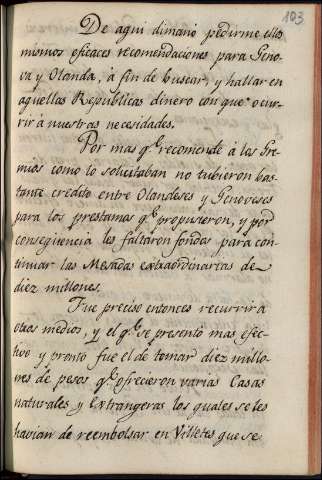 103
De aqui dimanó pedirme ellos
mismos eficaces recomendaciones para Geno-
va y Olanda, à fin de buscar, y hallar en
aquellas Republicas dinero con que ocur-
rir à nuestras necesidades.
Por mas q.e recomendè à los Gre-
mios como lo solicitaban no tubieron bas-
tante credito entre Olandeses y Genoveses
para los prestamos q.e propusieron, y por
consequencia les faltaron fondos para con-
tinuar las Mesadas extraordinarias de
diez millones.
Fue preciso entonces recurrir à
otros medios, y el q.e se presentó mas efec-
tivo y pronto fue el de tomar diez millo-
nes de pesos q.e ofrecieron varias Casas
naturales y Extrangeras los quales se les
havian de reembolsar en Villetes que se